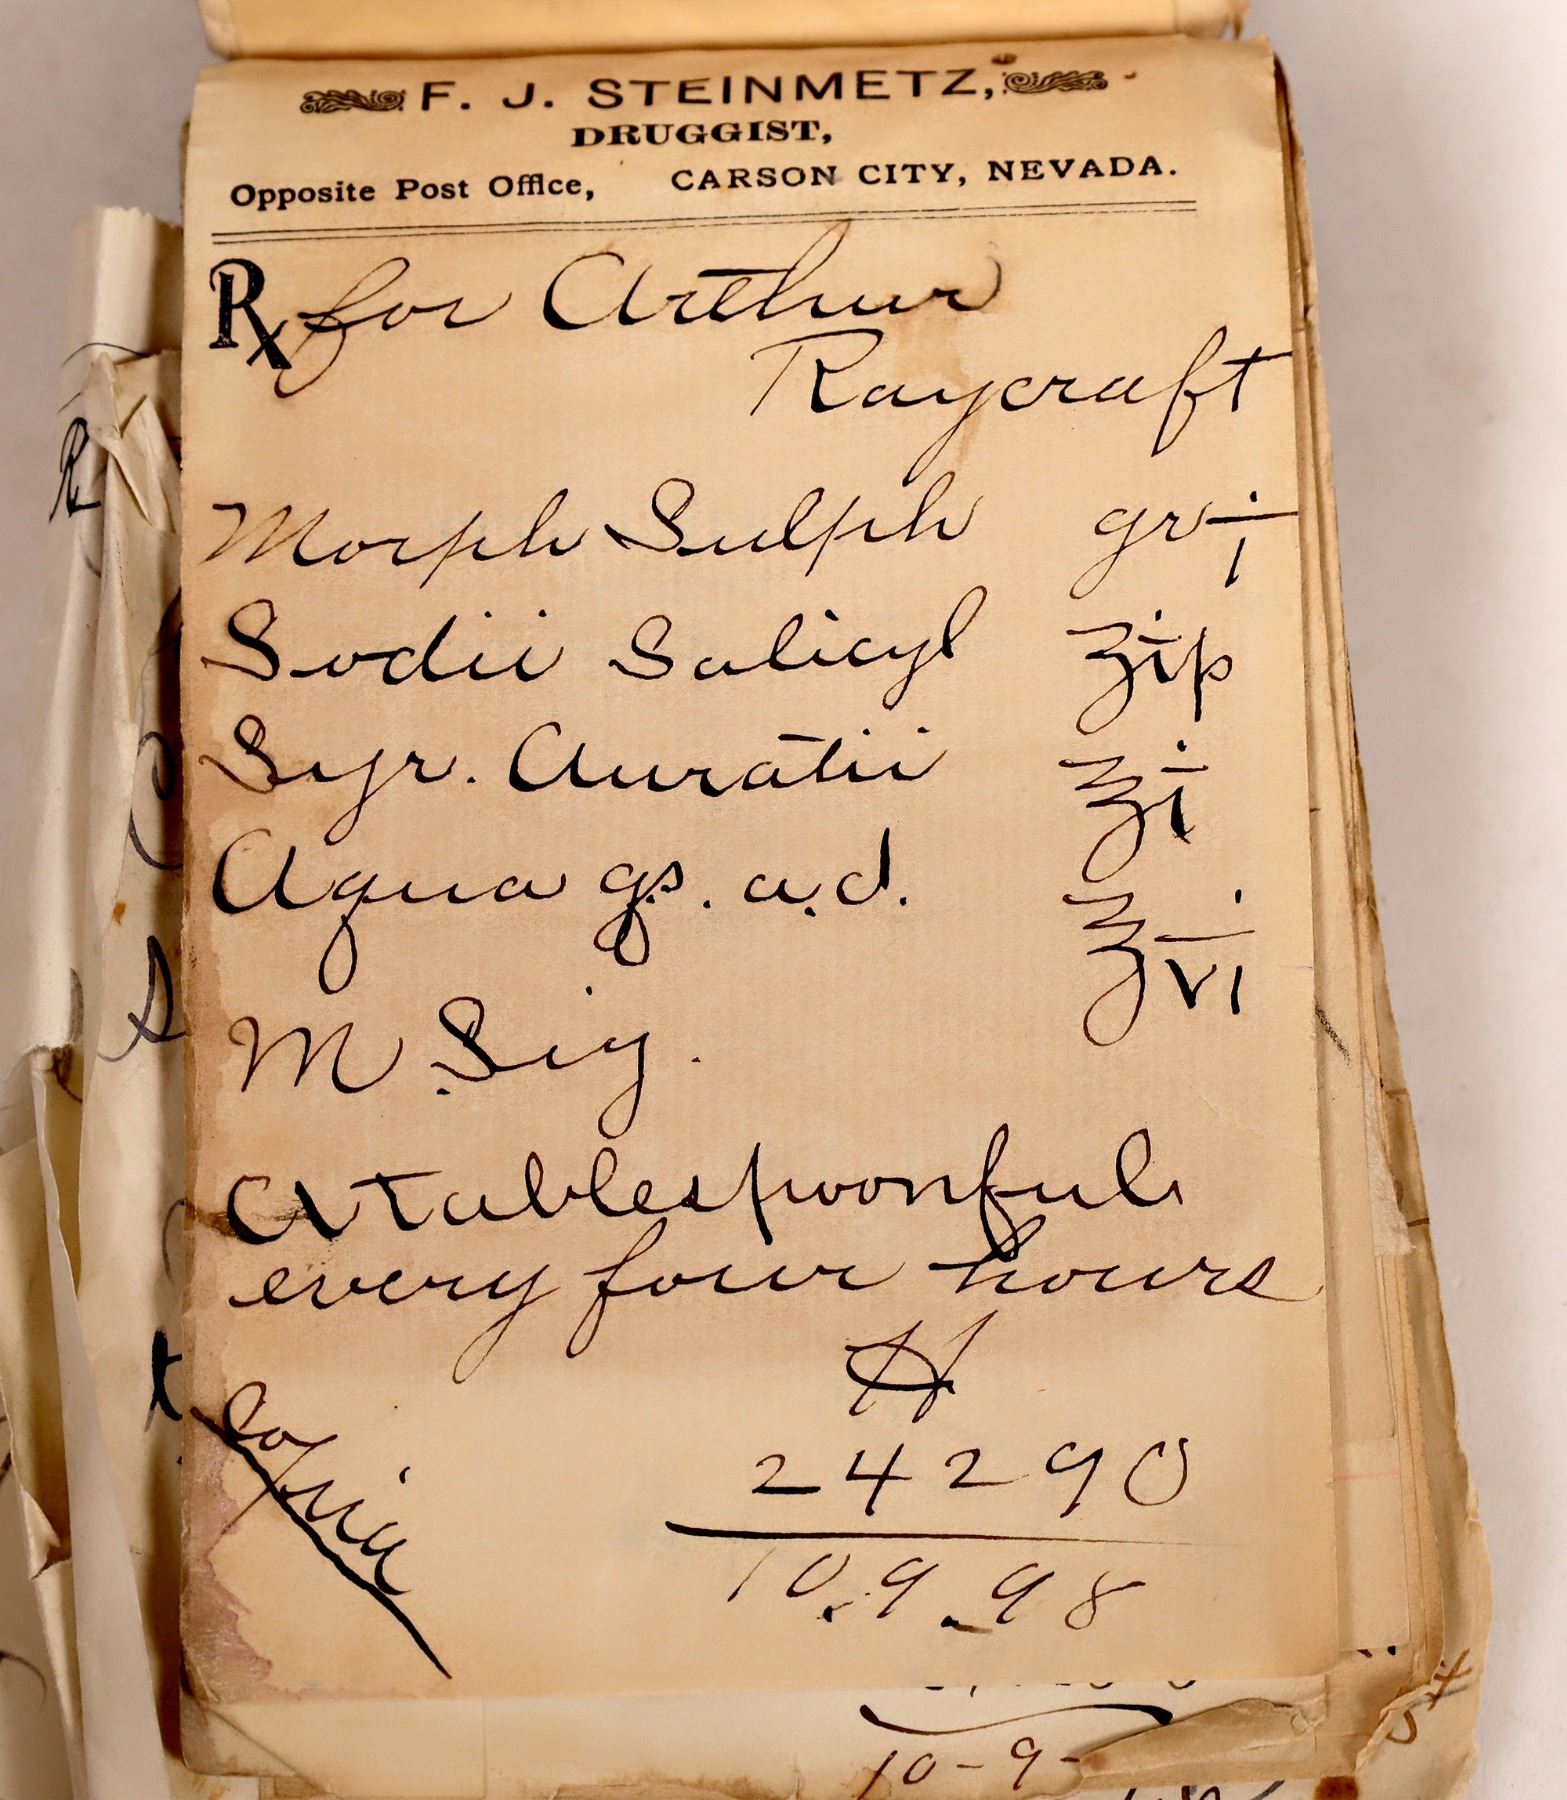 F. J. STEINMETZ,
DRUGGIST,
Opposite Post Office, CARSON CITY, NEVADA.
Rx for Arthur
Raycraft
Morph Sulph gr i
Sodii Salicyl ʒiß
Syr. Auratii ℥i
Aqua qs. a.d. ℥vi
M Sig.
A tablespoonful
every four hours
H
24290
10.9.98
Copia
10-9-